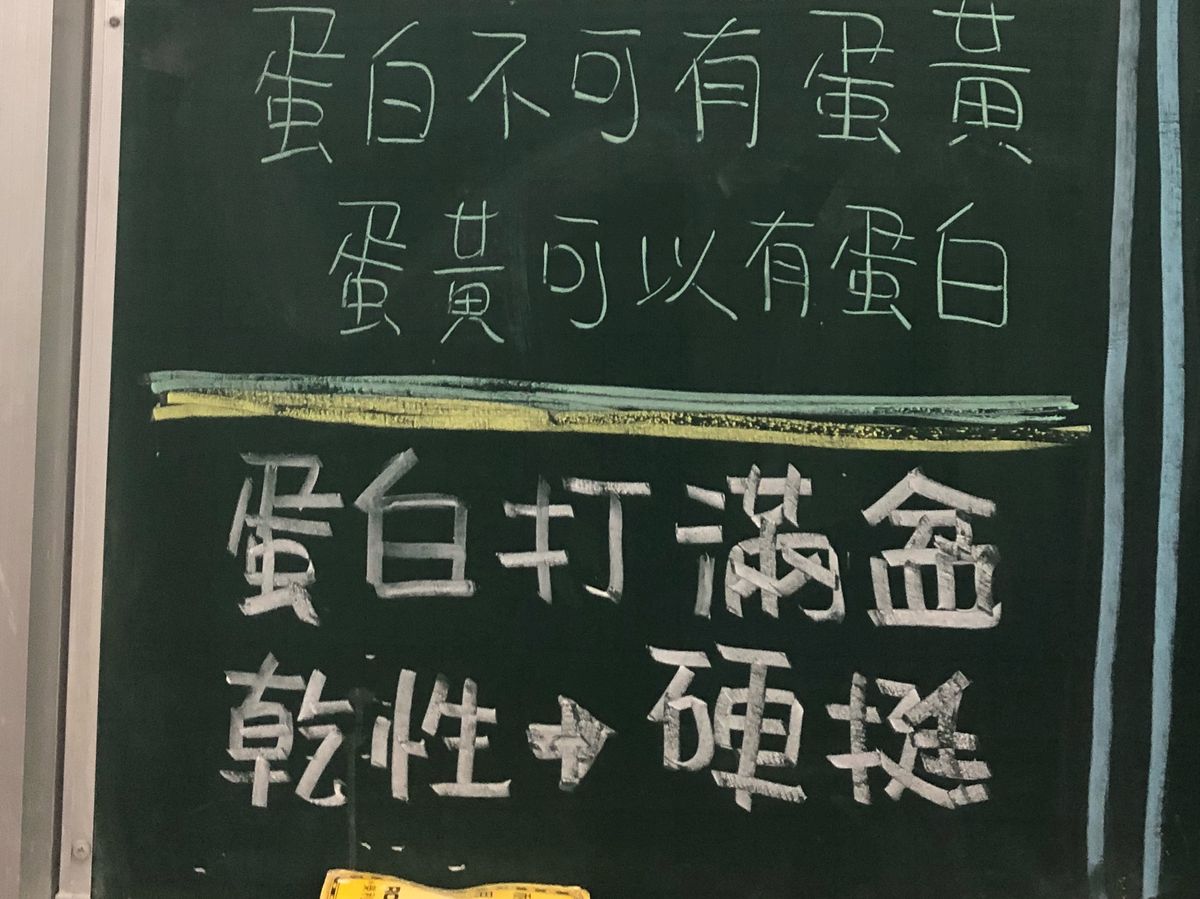 蛋白不可有蛋黃
蛋黃可以有蛋白
蛋白打滿盆
乾性→硬挺